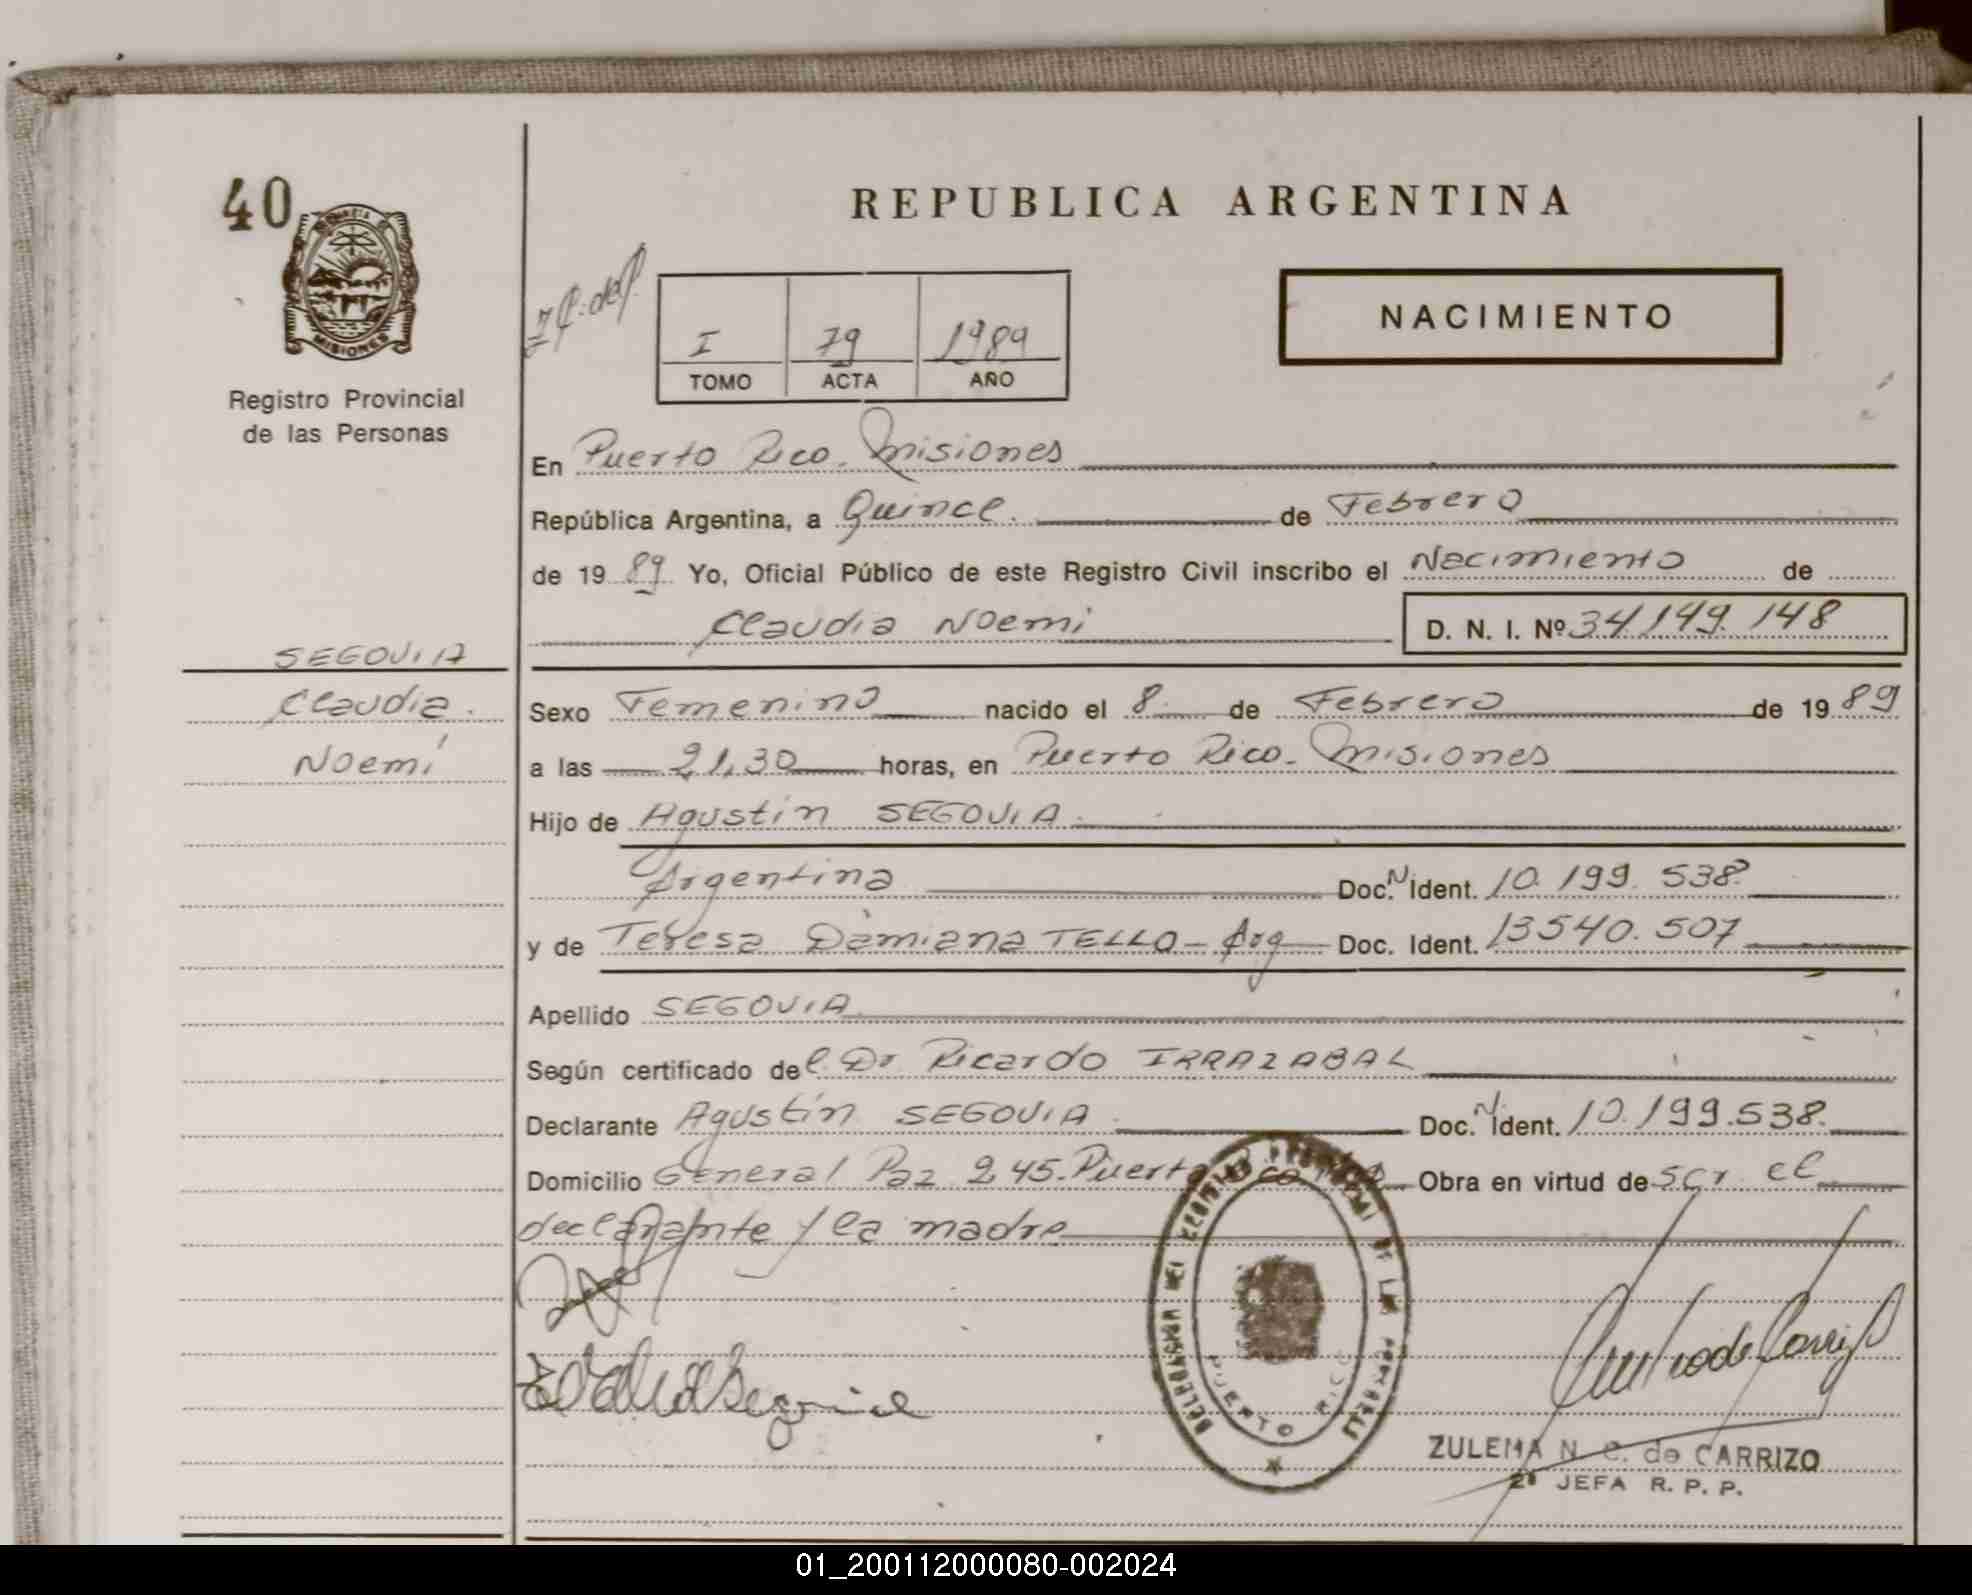 40
REPUBLICA ARGENTINA
MISIONES
Registro Provincial
de las Personas
I 79 1989
TOMO ACTA AÑO
NACIMIENTO
En Puerto Rico. Misiones
República Argentina, a Quince. de Febrero
de 19 89 Yo, Oficial Público de este Registro Civil inscribo el Nacimiento de
Claudia Noemi D. N. I. Nº 34.149.148
SEGOVIA
Claudia.
Noemí
Sexo Femenino nacido el 8. de Febrero de 19 89
a las 21,30 horas, en Puerto Rico. Misiones
Hijo de Agustín SEGOVIA.
Argentina Doc. N Ident. 10.199.538.
y de Teresa Damiana TELLO - Arg Doc. Ident. 13540.507
Apellido SEGOVIA.
Según certificado del Dr. Ricardo IRRAZABAL
Declarante Agustín SEGOVIA. Doc. N Ident. 10.199.538.
Domicilio General Paz 245. Puerto Rico Obra en virtud de ser el
declarante y la madre
DELEGACION DEL REGISTRO PROVINCIAL DE LAS PERSONAS
PUERTO RICO
ZULEMA N. C. de CARRIZO
2ª JEFA R. P. P.
01_200112000080-002024